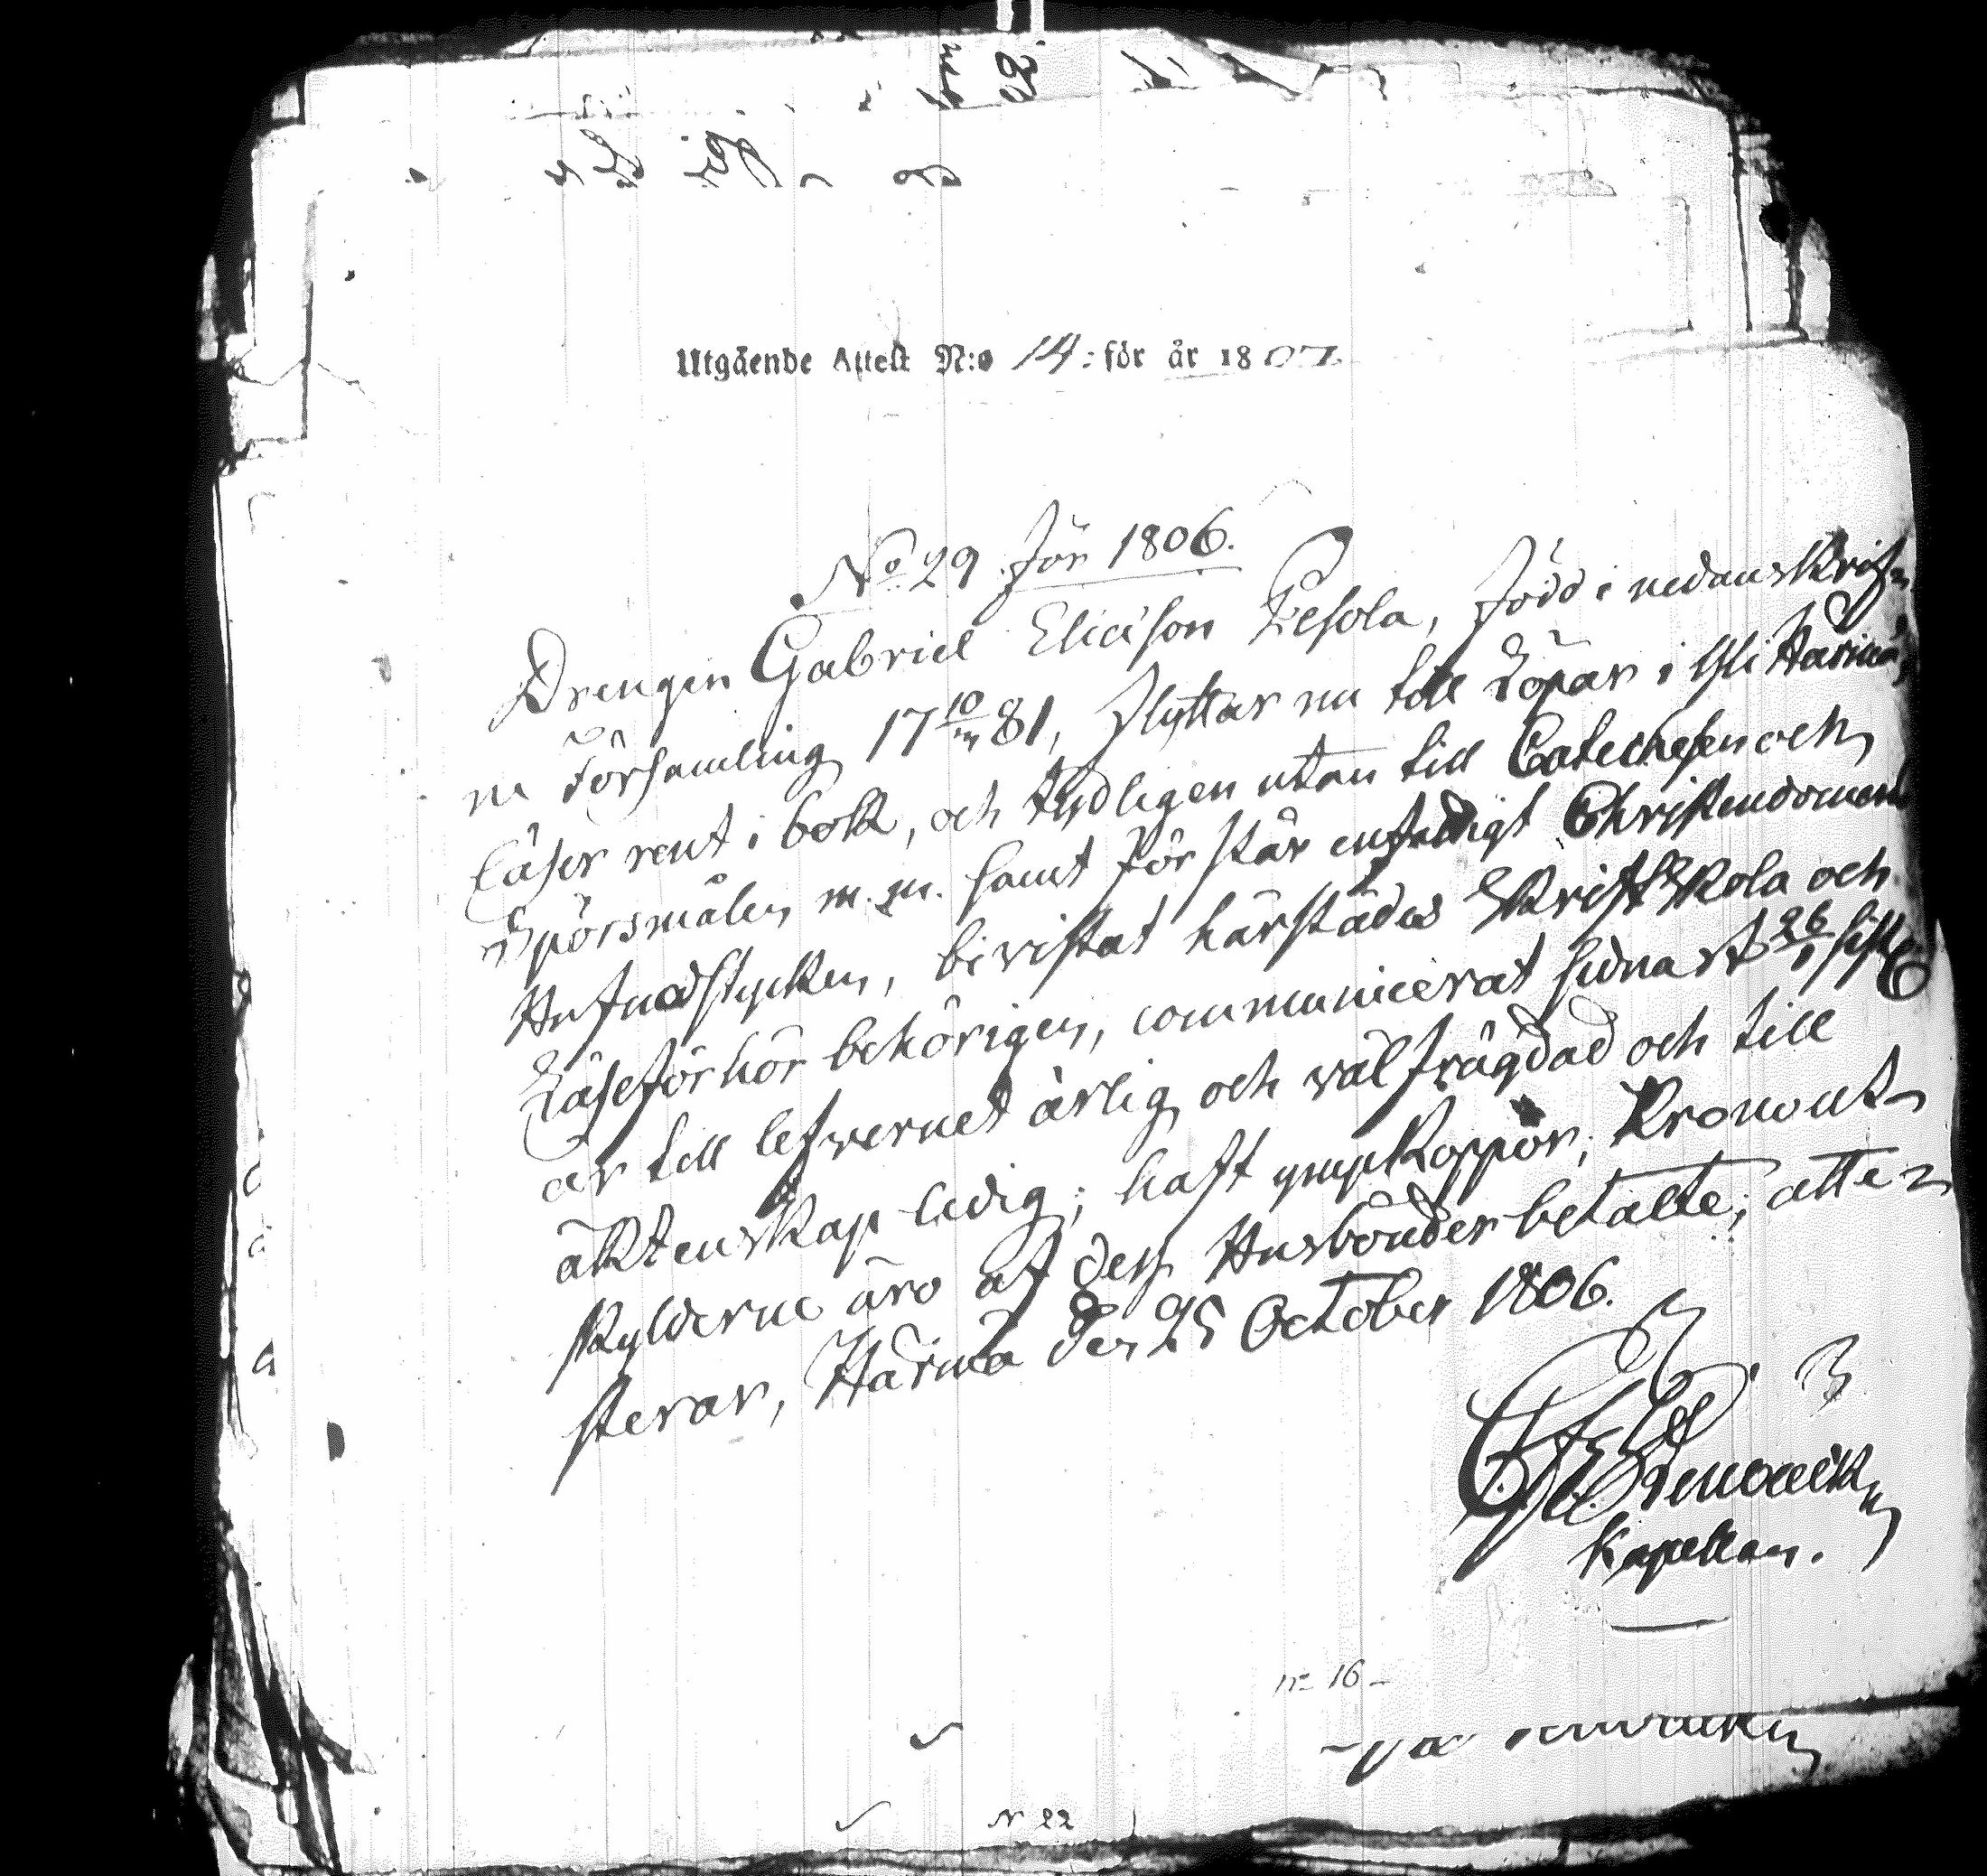 Utgående Attest N:o 14: för år 1807
No 29 för 1806.
Drengen Gabriel Elici'son Kesola, född i nedanskrif-
ne Församling 17 10/m 81, flyttar nu till Löpar i Yli Härmä,
läser rent i bok, och tydligen utan till Catechesen och
Spörsmålen m.m. samt förstår enfaldigt Christendomens
Hufvudstycken, bevistat härstädes Skriftskola och
Läseförhör behörigen, communicerat sidnast 26/ sistl.
är till lefvernet ärlig och välfrägdad och till
äktenskap ledig; haft ympkoppor; Kronout-
skylderne äro af dess Husbönder betalte; atte-
sterar, Härmä den 25 October 1806.
Kapellan.
n:o 16
N 22